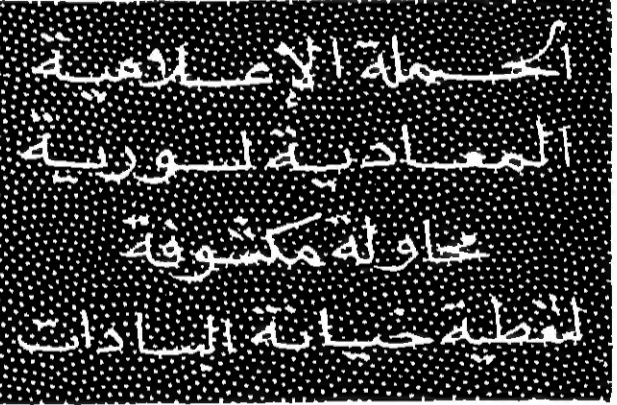 الحملة الإعلامية
المعادية لسورية
محاولة مكشوفة
لتغطية خيانة السادات